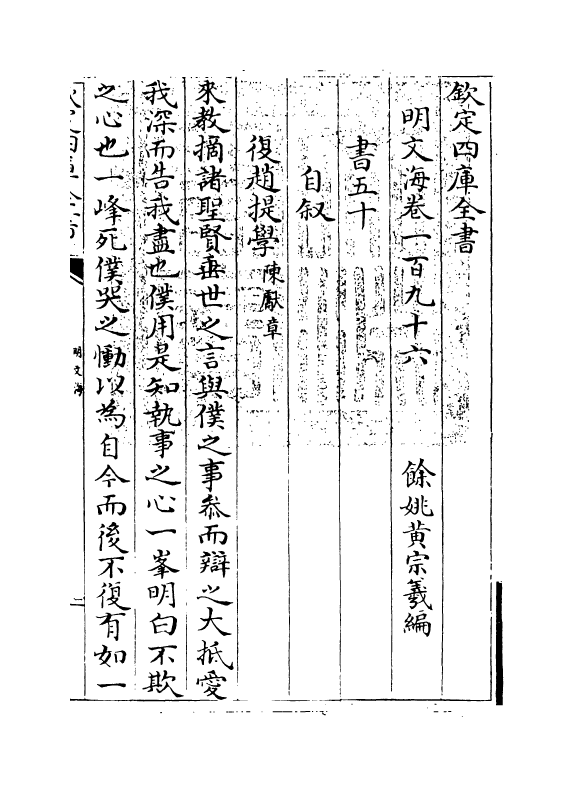 欽定四庫全書
明文海卷一百九十六
餘姚黄宗羲編
書五十
自叙
復趙提學陳獻章
來教摘諸聖賢垂世之言與僕之事叅而辯之大抵愛
我深而告我盡也僕用是知執事之心一峯明白不欺
之心也一峰死僕哭之慟以為自今而後不復有如一
明文海